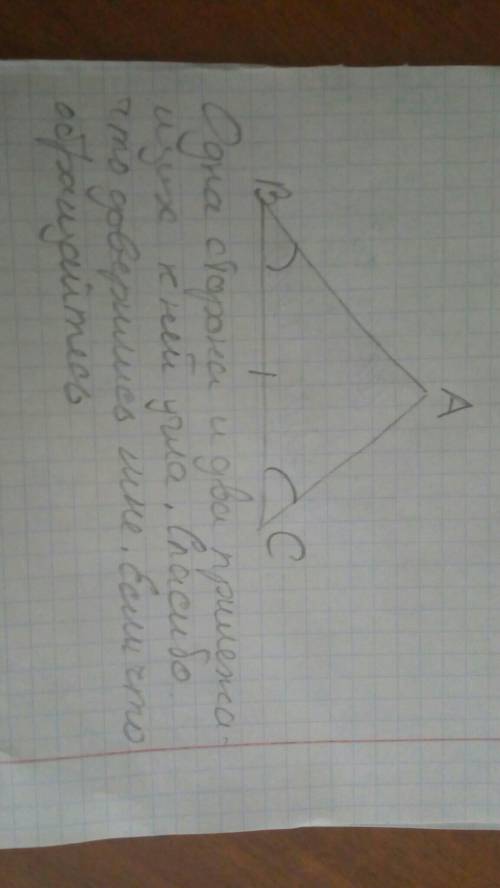 A
B
C
Одна сторона и два прилежа-
щих к ней угла. Спасибо
что доверились мне. Если что
обращайтесь